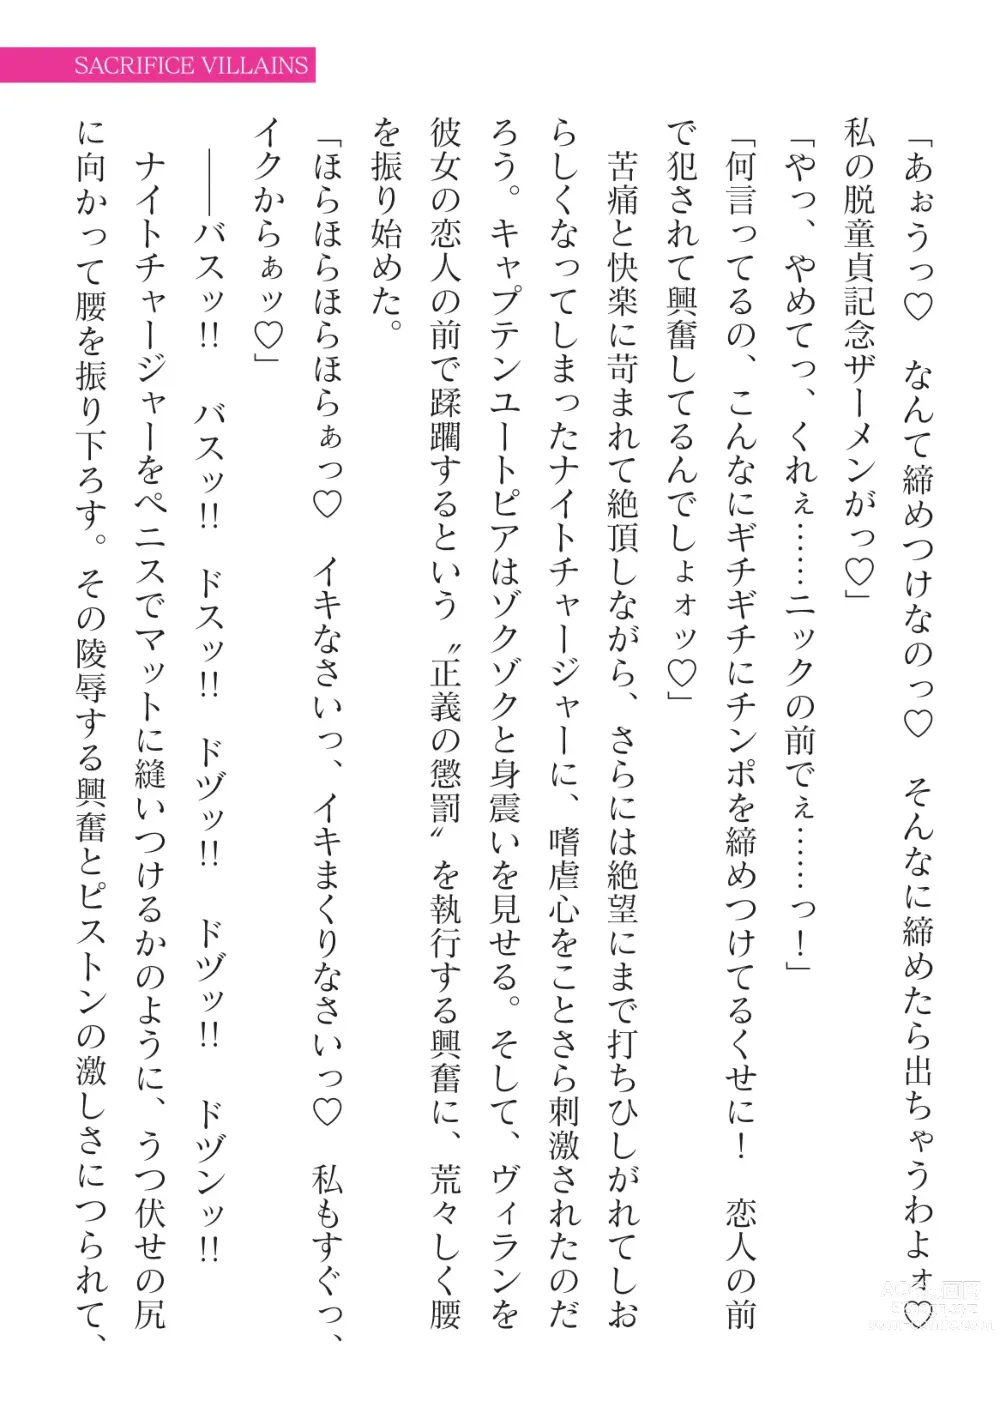 SACRIFICE VILLAINS
「あぉうっ♡　なんて締めつけなのっ♡　そんなに締めたら出ちゃうわよォ♡
私の脱童貞記念ザーメンがっ♡」
「やっ、やめてっ、くれぇ……ニックの前でぇ……っ！」
「何言ってるの、こんなにギチギチにチンポを締めつけてるくせに！　恋人の前
で犯されて興奮してるんでしょォッ♡」
　苦痛と快楽に苛まれて絶頂しながら、さらには絶望にまで打ちひしがれてしお
らしくなってしまったナイトチャージャーに、嗜虐心をことさら刺激されたのだ
ろう。キャプテンユートピアはゾクゾクと身震いを見せる。そして、ヴィランを
彼女の恋人の前で蹂躙するという〝正義の懲罰〟を執行する興奮に、荒々しく腰
を振り始めた。
「ほらほらほらほらぁっ♡　イキなさいっ、イキまくりなさいっ♡　私もすぐっ、
イクからぁッ♡」
　――バスッ!!　バスッ!!　ドスッ!!　ドヅッ!!　ドヅッ!!　ドヅンッ!!
　ナイトチャージャーをペニスでマットに縫いつけるかのように、うつ伏せの尻
に向かって腰を振り下ろす。その陵辱する興奮とピストンの激しさにつられて、